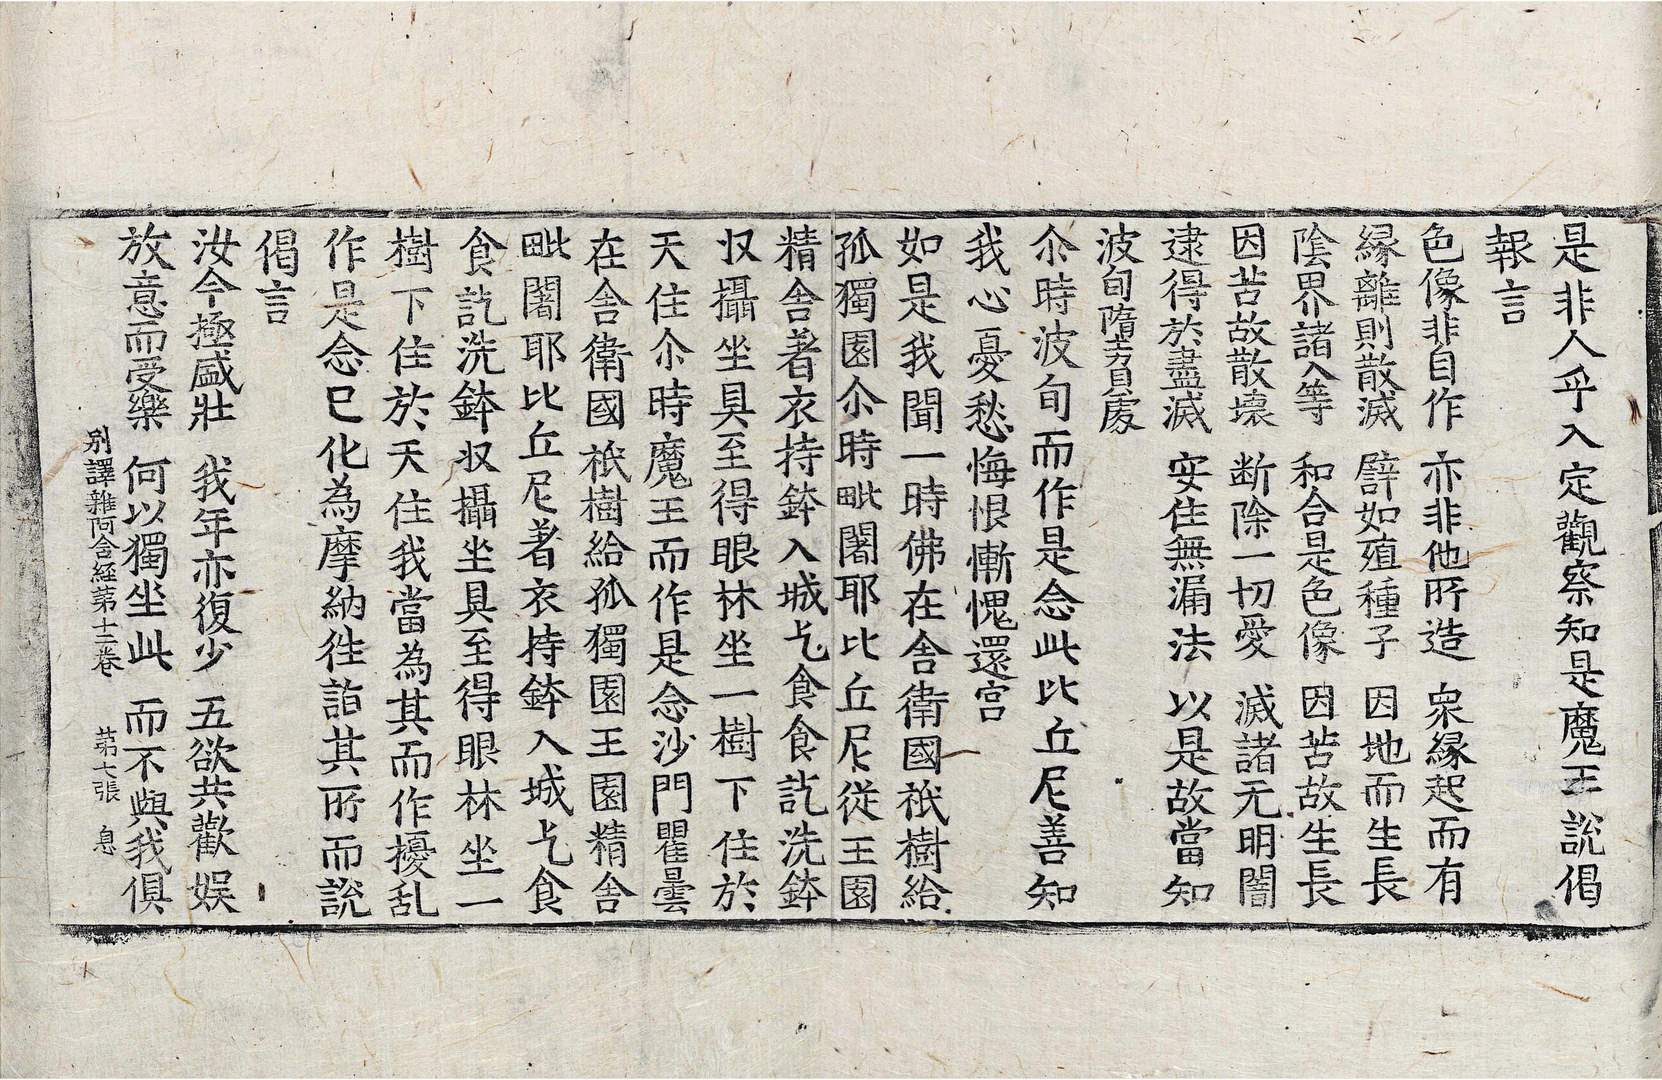 是非人乎入定觀察知是魔王說偈
報言
色像非自作 亦非他所造 衆縁起而有
縁離則散滅 譬如殖種子 因地而生長
隂界諸入等 和合是色像 因苦故生長
因苦故散壊 断除一切愛 滅諸无明闇
逮得於盡滅 安住無漏法 以是故當知
波旬墮負處
尒時波旬而作是念此比丘尼善知
我心憂愁悔恨慚愧還宮
如是我聞一時佛在舍衛國祇樹給
孤獨園尒時毗闍耶比丘尼從王園
精舍著衣持鉢入城乞食食訖洗鉢
収攝坐具至得眼林坐一樹下住於
天住尒時魔王而作是念沙門瞿曇
在舍衛國祇樹給孤獨園王園精舍
毗闍耶比丘尼著衣持鉢入城乞食
食訖洗鉢収攝坐具至得眼林坐一
樹下住於天住我當為其而作擾乱
作是念已化為摩納徃詣其所而說
偈言
汝今極盛壯 我年亦復少 五欲共歡娛
放意而受樂 何以獨坐此 而不與我俱
别譯雜阿含経第十二卷 第七張 息